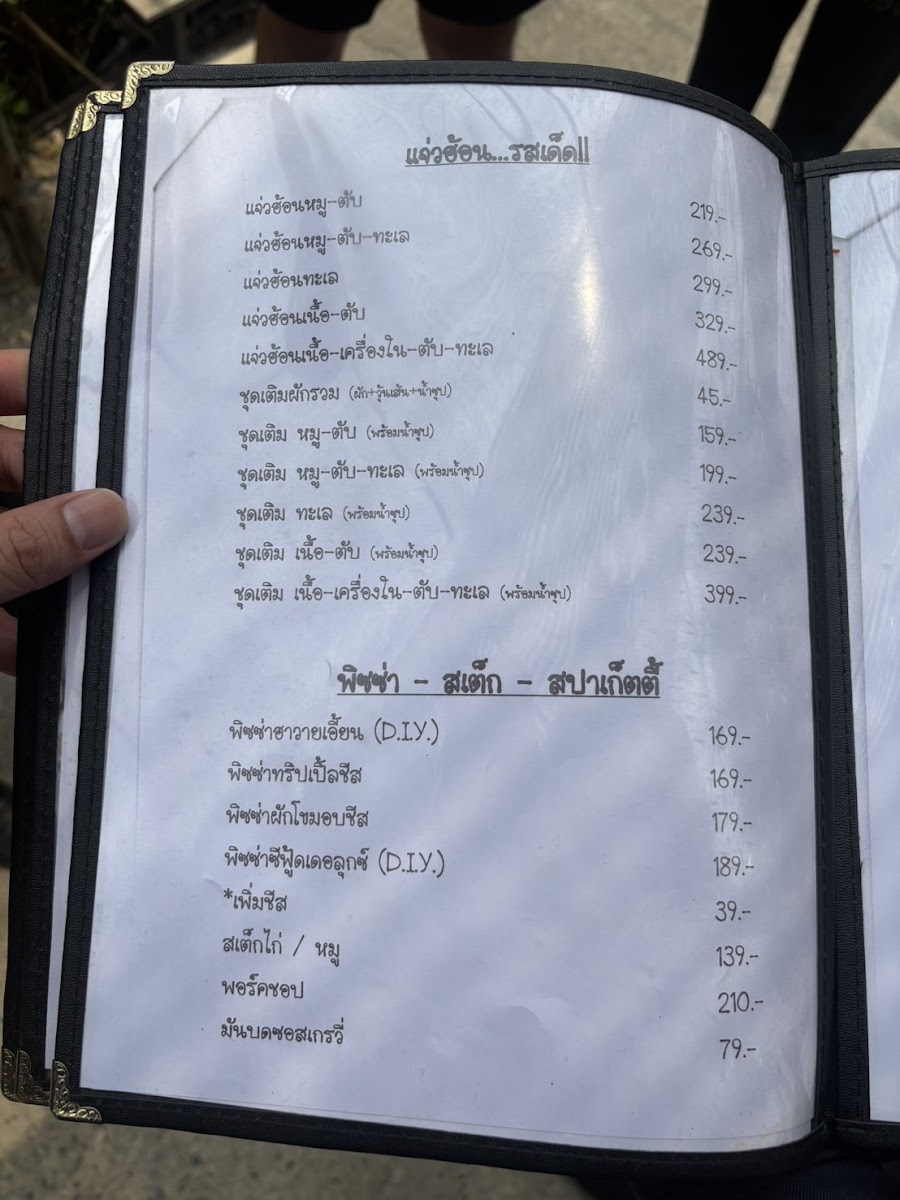 แจ่วฮ้อน...รสเด็ด!!
แจ่วฮ้อนหมู-ตับ 219.-
แจ่วฮ้อนหมู-ตับ-ทะเล 269.-
แจ่วฮ้อนทะเล 299.-
แจ่วฮ้อนเนื้อ-ตับ 329.-
แจ่วฮ้อนเนื้อ-เครื่องใน-ตับ-ทะเล 489.-
ชุดเติมผักรวม (ผัก+วุ้นเส้น+น้ำซุป) 45.-
ชุดเติม หมู-ตับ (พร้อมน้ำซุป) 159.-
ชุดเติม หมู-ตับ-ทะเล (พร้อมน้ำซุป) 199.-
ชุดเติม ทะเล (พร้อมน้ำซุป) 239.-
ชุดเติม เนื้อ-ตับ (พร้อมน้ำซุป) 239.-
ชุดเติม เนื้อ-เครื่องใน-ตับ-ทะเล (พร้อมน้ำซุป) 399.-
พิซซ่า - สเต็ก - สปาเก็ตตี้
พิซซ่าฮาวายเอี้ยน (D.I.Y.) 169.-
พิซซ่าทริปเปิ้ลชีส 169.-
พิซซ่าผักโขมอบชีส 179.-
พิซซ่าซีฟู้ดเดอลุกซ์ (D.I.Y.) 189.-
*เพิ่มชีส 39.-
สเต็กไก่ / หมู 139.-
พอร์คชอป 210.-
มันบดซอสเกรวี่ 79.-